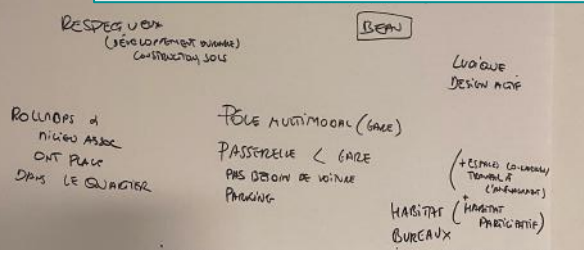 RESPECTUEUX
(DÉVELOPPEMENT DURABLE)
CONSTRUCTION SOLS
BEAU
LUDIQUE
DESIGN ACTIF
ROLLADPS &
MILIEU ASSOC
ONT PLACE
DANS LE QUARTIER
PÔLE MULTIMODAL (GARE)
PASSERELLE < GARE
PAS BESOIN DE VOITURE
PARKING
(+ ESPACES CO-WORKING
TRAVAIL À
+
HABITAT (HABITAT
PARTICIPATIF)
BUREAUX